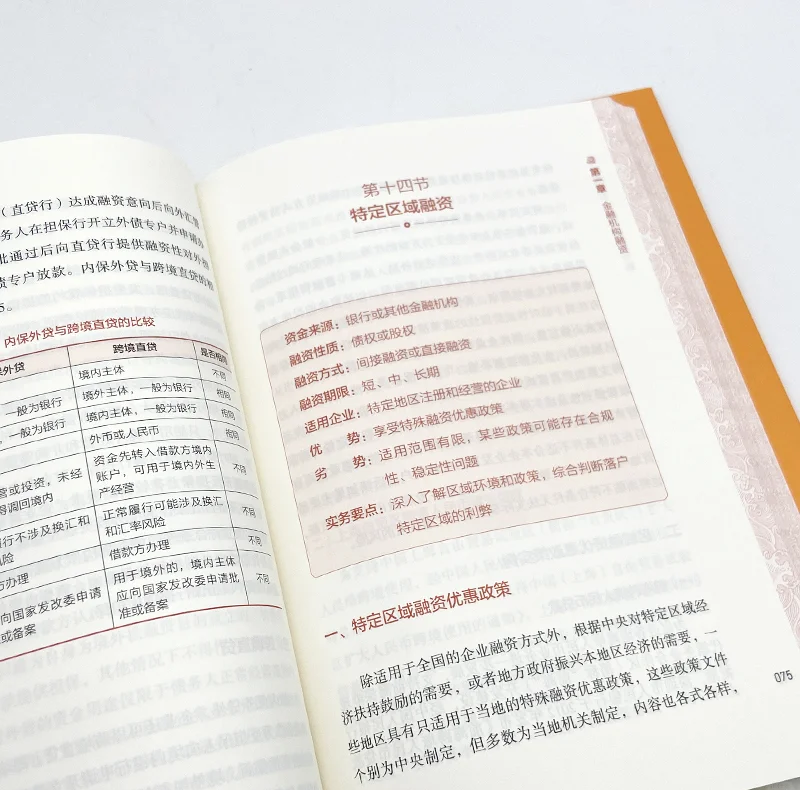 （直贷行）达成融资意向后向外汇
务人在担保行开立外债专户并申请
比通过后向直贷行提供融资性对外担
债专户放款。内保外贷与跨境直贷的
5。
内保外贷与跨境直贷的比较
外贷 跨境直贷 是否相同
境内主体 不同
，一般为银行 境外主体，一般为银行 相同
，一般为银行 境内主体，一般为银行 相同
外币或人民币 相同
营或投资，未经
得调回境内
资金先转入借款方境内
账户，可用于境内外生
产经营
不同
行不涉及换汇和
风险
正常履行可能涉及换汇
和汇率风险
不同
方办理 借款方办理 不同
向国家发改委申请
或备案
用于境外的，境内主体
应向国家发改委申请批
准或备案
不同
第十四节
特定区域融资
资金来源：银行或其他金融机构
融资性质：债权或股权
融资方式：间接融资或直接融资
融资期限：短、中、长期
适用企业：特定地区注册和经营的企业
优 势：享受特殊融资优惠政策
劣 势：适用范围有限，某些政策可能存在合规
性、稳定性问题
实务要点：深入了解区域环境和政策，综合判断落户
特定区域的利弊
一、特定区域融资优惠政策
除适用于全国的企业融资方式外，根据中央对特定区域经
济扶持鼓励的需要，或者地方政府振兴本地区经济的需要，一
些地区具有只适用于当地的特殊融资优惠政策，这些政策文件
个别为中央制定，但多数为当地机关制定，内容也各式各样，
第一章 金融机构融资
075